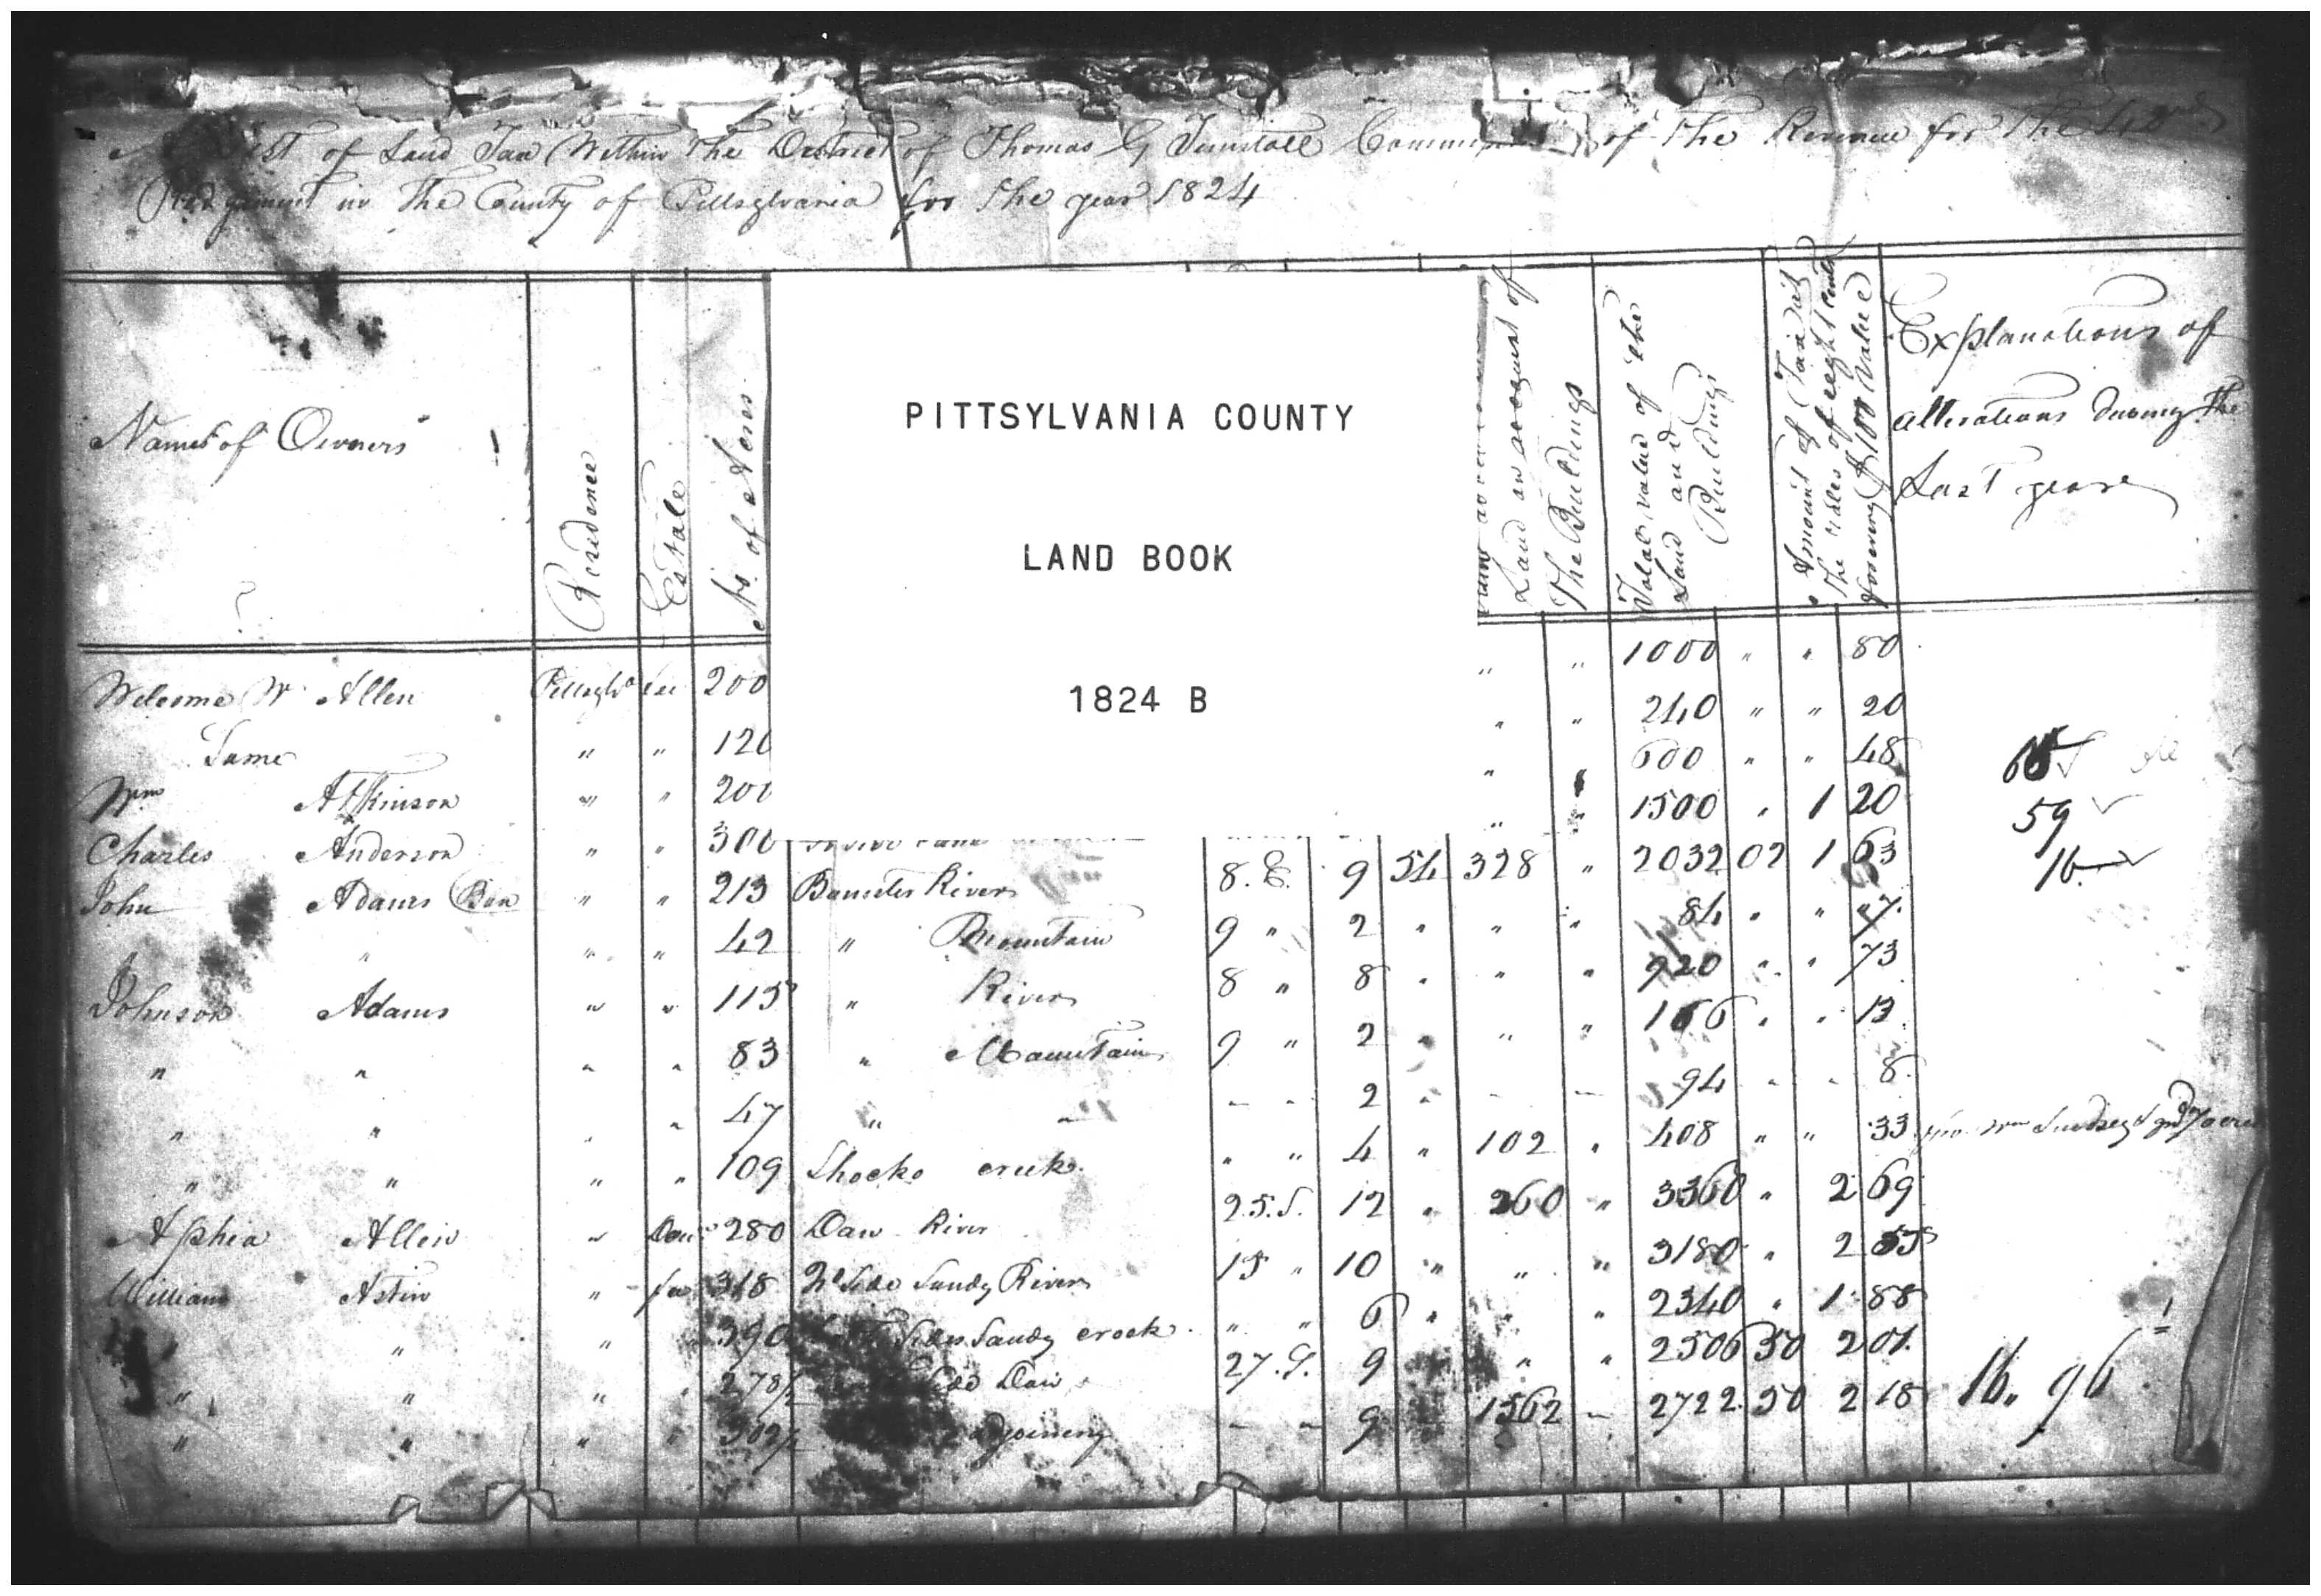 A List of Land Tax Within The District of Thomas G Tunstall of The Revenue for The 42nd
in The County of Pittsylvania for The year 1824
PITTSYLVANIA COUNTY
LAND BOOK
1824 B
Names of Owners
Residence
Estate
No. of Acres
Land on account of
The Buildings
Total value of the
Land and
Buildings
Amount of Tax at
the rates of eight Cents
for every $100 Value
Explanations of
alterations during the
Last year
Welcome W Allen Pittsylva fee 200 " " 1000 " " 80
Same " " 120 " " 240 " " 20
Wm Atkinson " " 200 " " 600 " " 48
Charles Anderson " " 300 " " 1500 " 1 20 59
John Adams Ban " " 213 Banister River 8. E. 9 54 328 " 2032 02 1 63 16
" " " 42 " Mountain 9 " 2 " " " 84 " " " 7
Johnson Adams " " 115 " River 8 " 8 " " " 920 " " 73
" " " " 83 " Mountain 9 " 2 " " " 166 " " 13
" " " " 47 " " - - 2 - - - 94 " " 8
" " " " 109 Shocko creek " " 4 " 102 " 408 " " 33 Wm
Aphia Allen " Dow 280 Dan River 25. S. 12 " 260 " 3360 " 2 69
William Astin " fee 318 Side Sandy River 15 " 10 " " " 3180 " 2 55
" " " 390 Sides Sandy creek " " 6 " " " 2340 " 1 88
" " " " 278½ Side Dan 27. 9 " " 2506 50 2 01
" " " " 302½ adjoining - - 9 1562 - 2722 50 2 18 16. 96